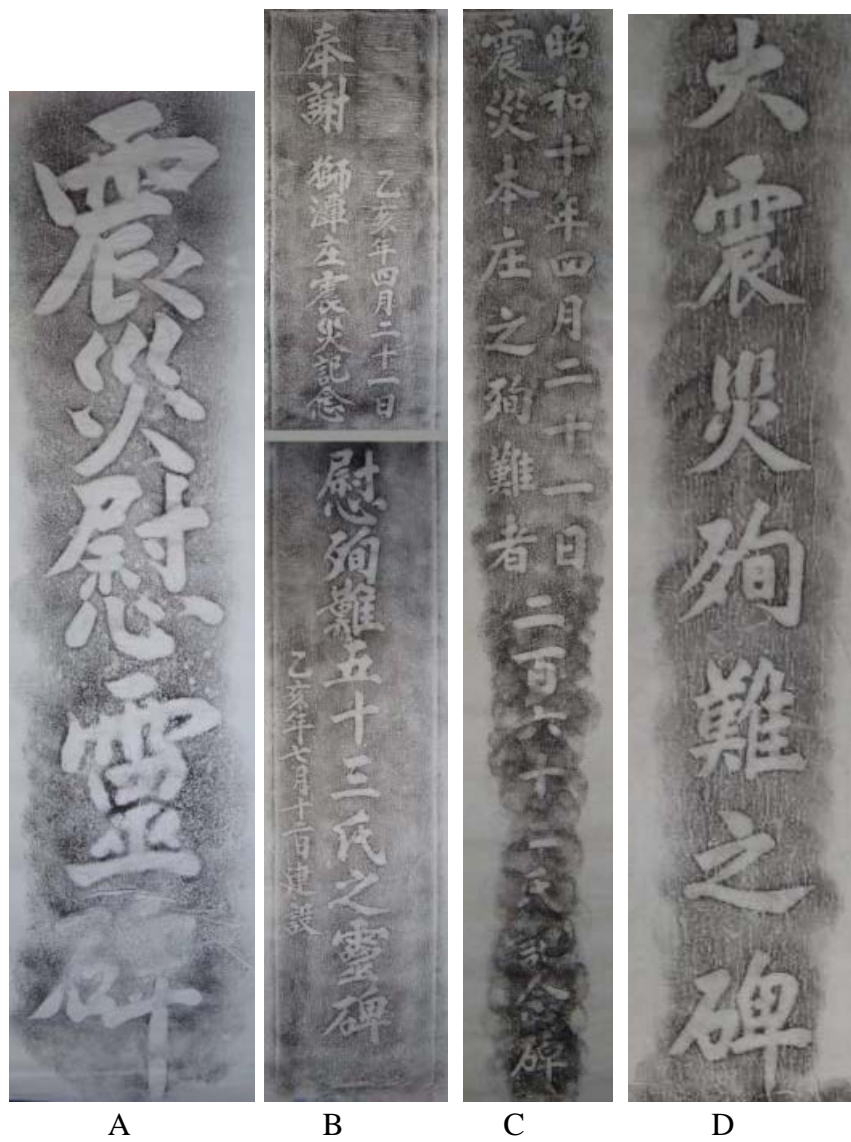 震災慰霊碑
奉謝
乙亥年四月二十一日
獅潭庄震災記念
慰殉難五十三氏之靈碑
乙亥年七月十二日建設
昭和十年四月二十一日
震災本庄之殉難者
二百六十一氏記念碑
大震災殉難之碑
A
B
C
D